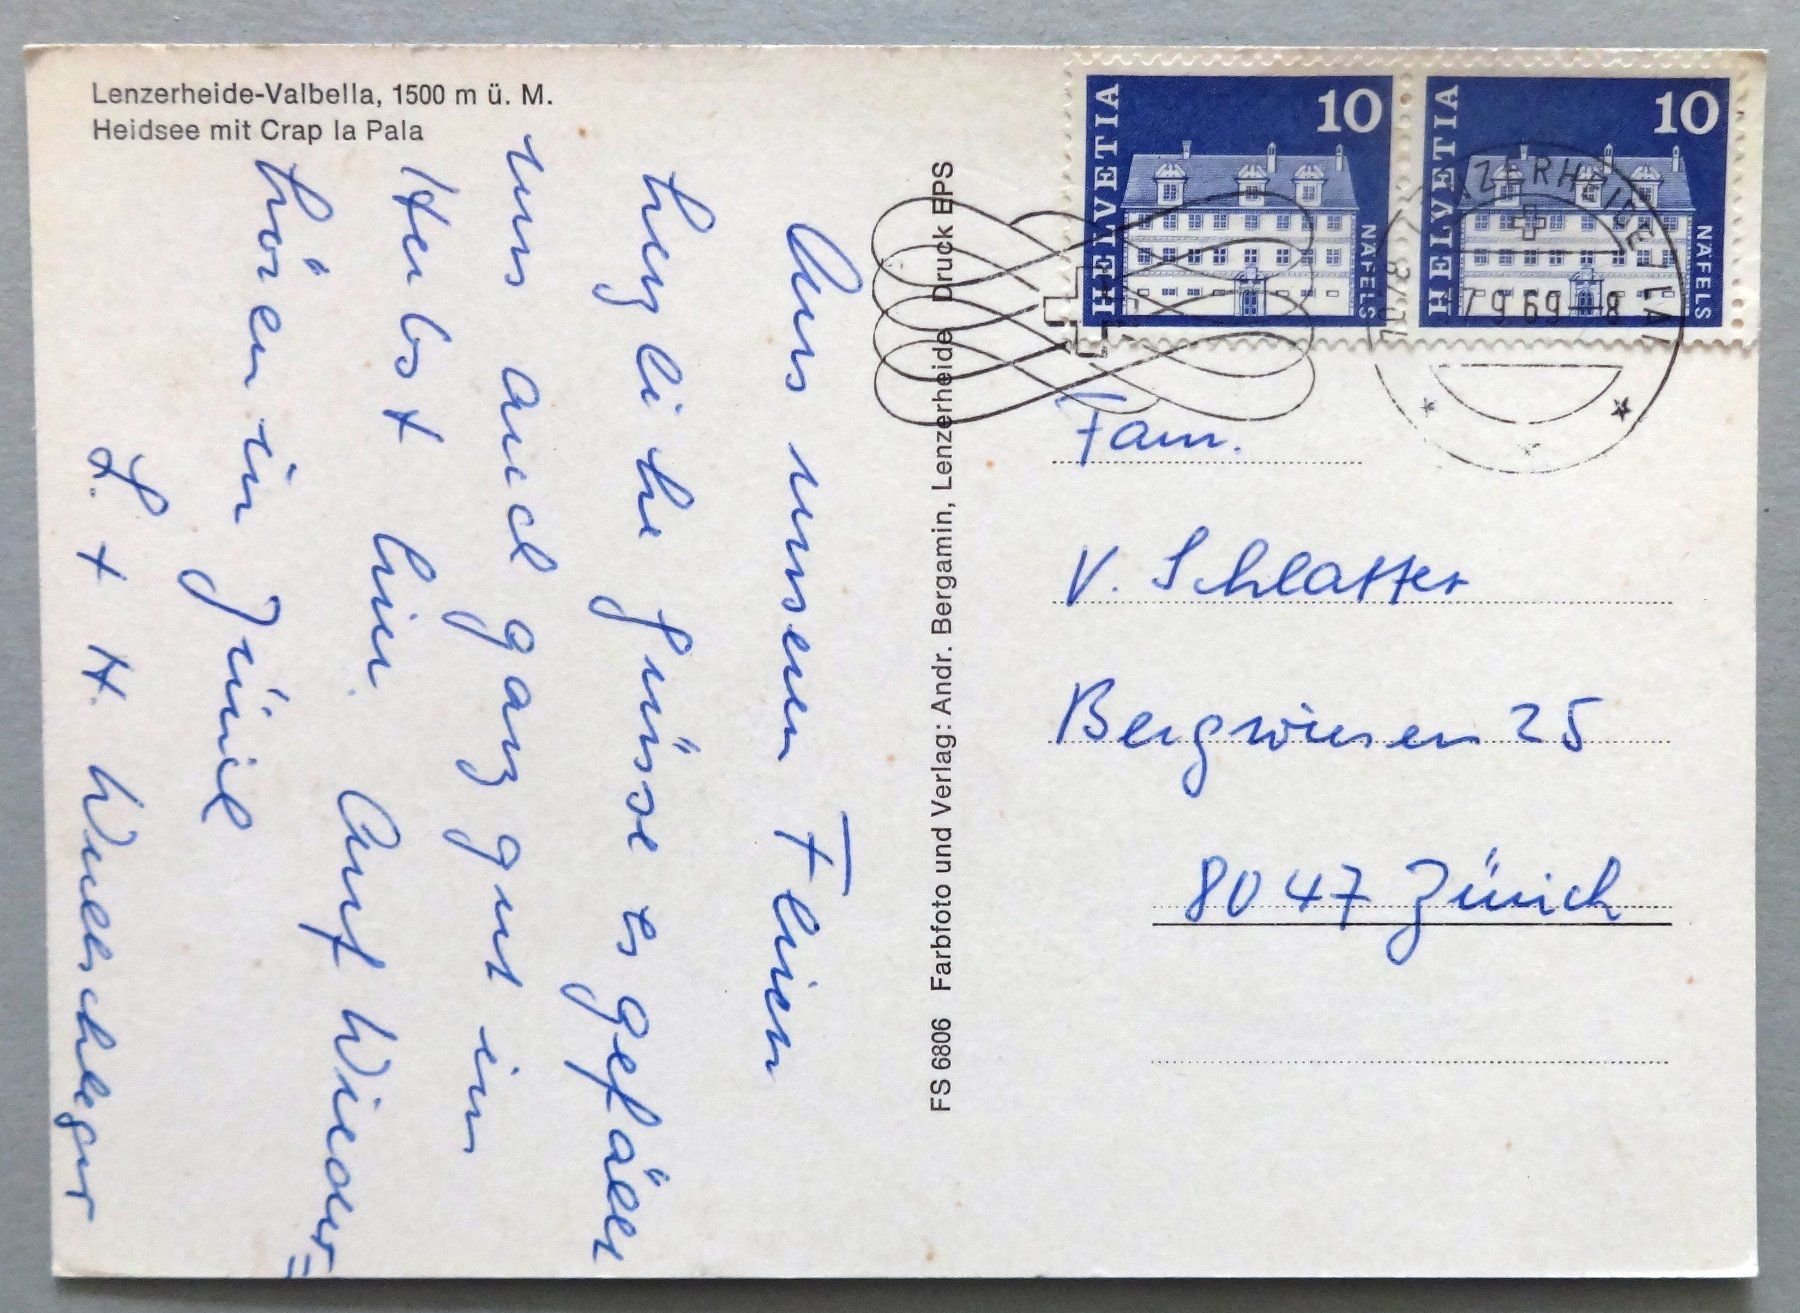 Lenzerheide-Valbella, 1500 m ü. M.
Heidsee mit Crap la Pala
Aus unseren Ferien
herzliche Grüsse es gefällt
uns auch ganz gut im
Herbst hier. Auf Wieder=
hören in
L. + H.
FS 6806 Farbfoto und Verlag: Andr. Bergamin, Lenzerheide Druck EPS
HELVETIA
10
NÄFELS
HELVETIA
10
NÄFELS
LENZERHEIDE LAI
7078
-7.9.69-8
Fam.
V. Schlatter
Bergwiesen 25
8047 Zürich